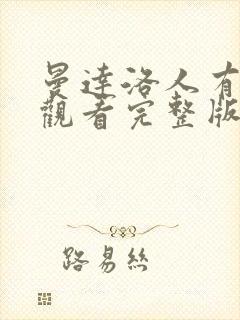 曼達洛人有
觀看完整版
路易絲